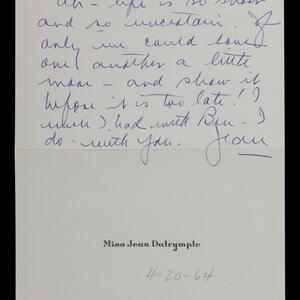 ah - life is so short
and so uncertain. If
only we could love
one another a little
more - and show it
before it is too late! I
wish I had with Ben - I
do - with you. Jean
Miss Jean Dalrymple
4-20-64